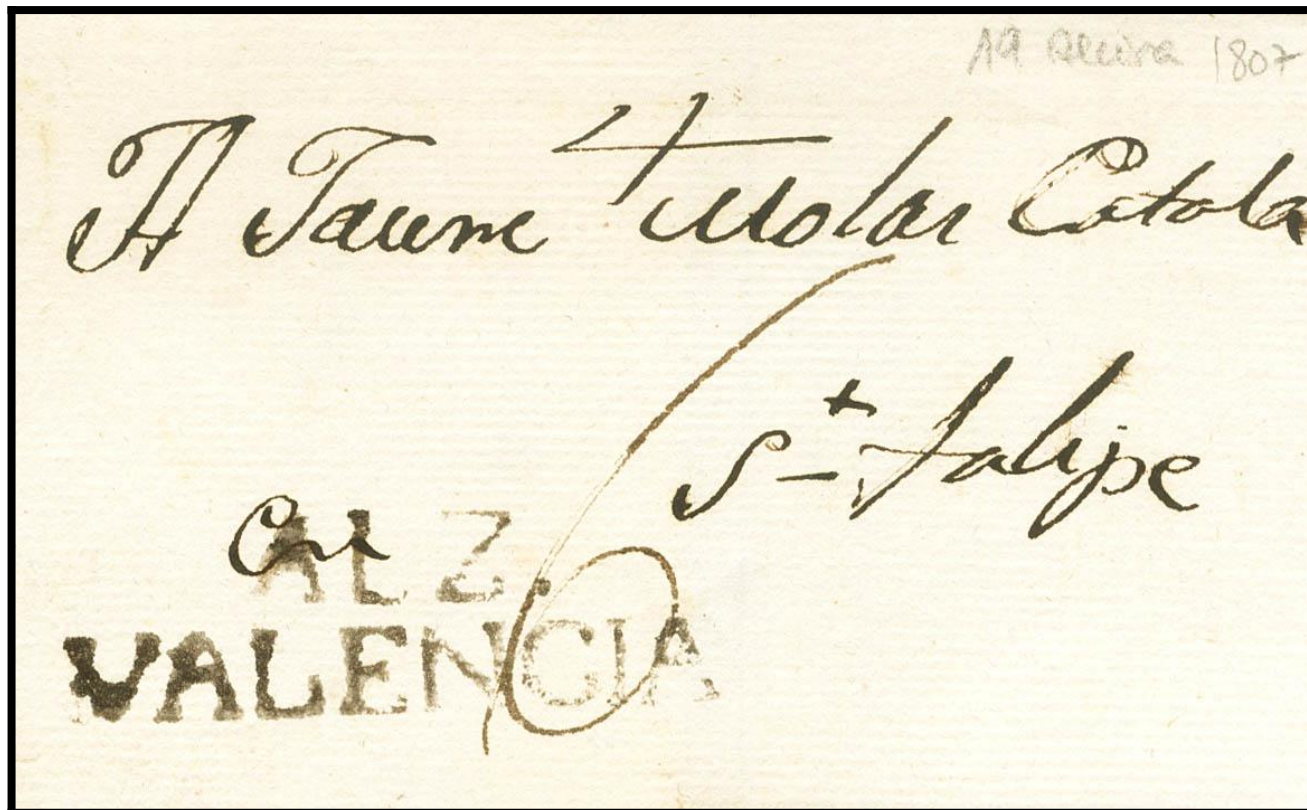 Alcira 1807
A Jaume Molar Catala
Sn Falipe
En
ALZ.
VALENCIA